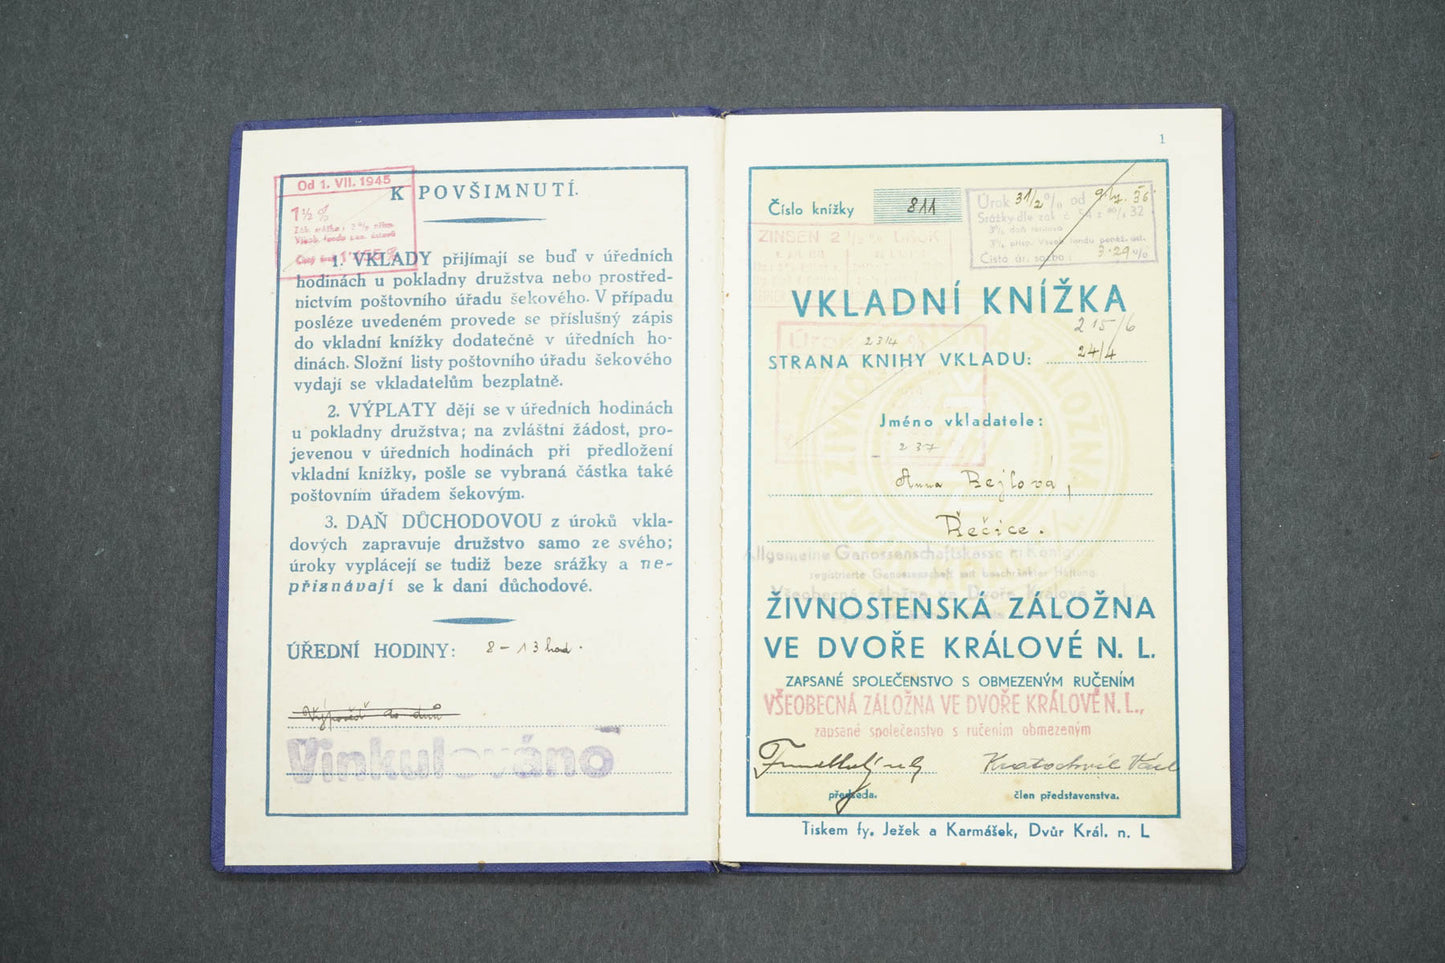 Od 1. VII. 1945
1½ %
K POVŠIMNUTÍ.
1. VKLADY přijímají se buď v úředních
hodinách u pokladny družstva nebo prostřed-
nictvím poštovního úřadu šekového. V případu
posléze uvedeném provede se příslušný zápis
do vkladní knížky dodatečně v úředních ho-
dinách. Složní listy poštovního úřadu šekového
vydají se vkladatelům bezplatně.
2. VÝPLATY dějí se v úředních hodinách
u pokladny družstva; na zvláštní žádost, pro-
jevenou v úředních hodinách při předložení
vkladní knížky, pošle se vybraná částka také
poštovním úřadem šekovým.
3. DAŇ DŮCHODOVOU z úroků vkla-
dových zapravuje družstvo samo ze svého;
úroky vyplácejí se tudíž beze srážky a ne-
přiznávají se k dani důchodové.
ÚŘEDNÍ HODINY: 8 - 13 hod.
Výpověď do dnů
Vinkulováno
1
Číslo knížky 811
Úrok 3 1/2 % od
Srážky dle zák. č.
3% daň
Čistá úr. sazba: 3·29 %
ZINSEN 2
VKLADNÍ KNÍŽKA
215/6
2314
STRANA KNIHY VKLADU: 24/4
Úrok
Jméno vkladatele:
237
Anna Rejlová,
Řečice.
Allgemeine Genossenschaftskasse
registrierte Genossenschaft mit beschränkter Haftung
Všeobecná záložna ve Dvoře Králové
ŽIVNOSTENSKÁ ZÁLOŽNA
VE DVOŘE KRÁLOVÉ N. L.
ZAPSANÉ SPOLEČENSTVO S OBMEZENÝM RUČENÍM
VŠEOBECNÁ ZÁLOŽNA VE DVOŘE KRÁLOVÉ N. L.,
zapsané společenstvo s ručením obmezeným
Kratochvíl
předseda. člen představenstva.
Tiskem fy. Ježek a Karmášek, Dvůr Král. n. L